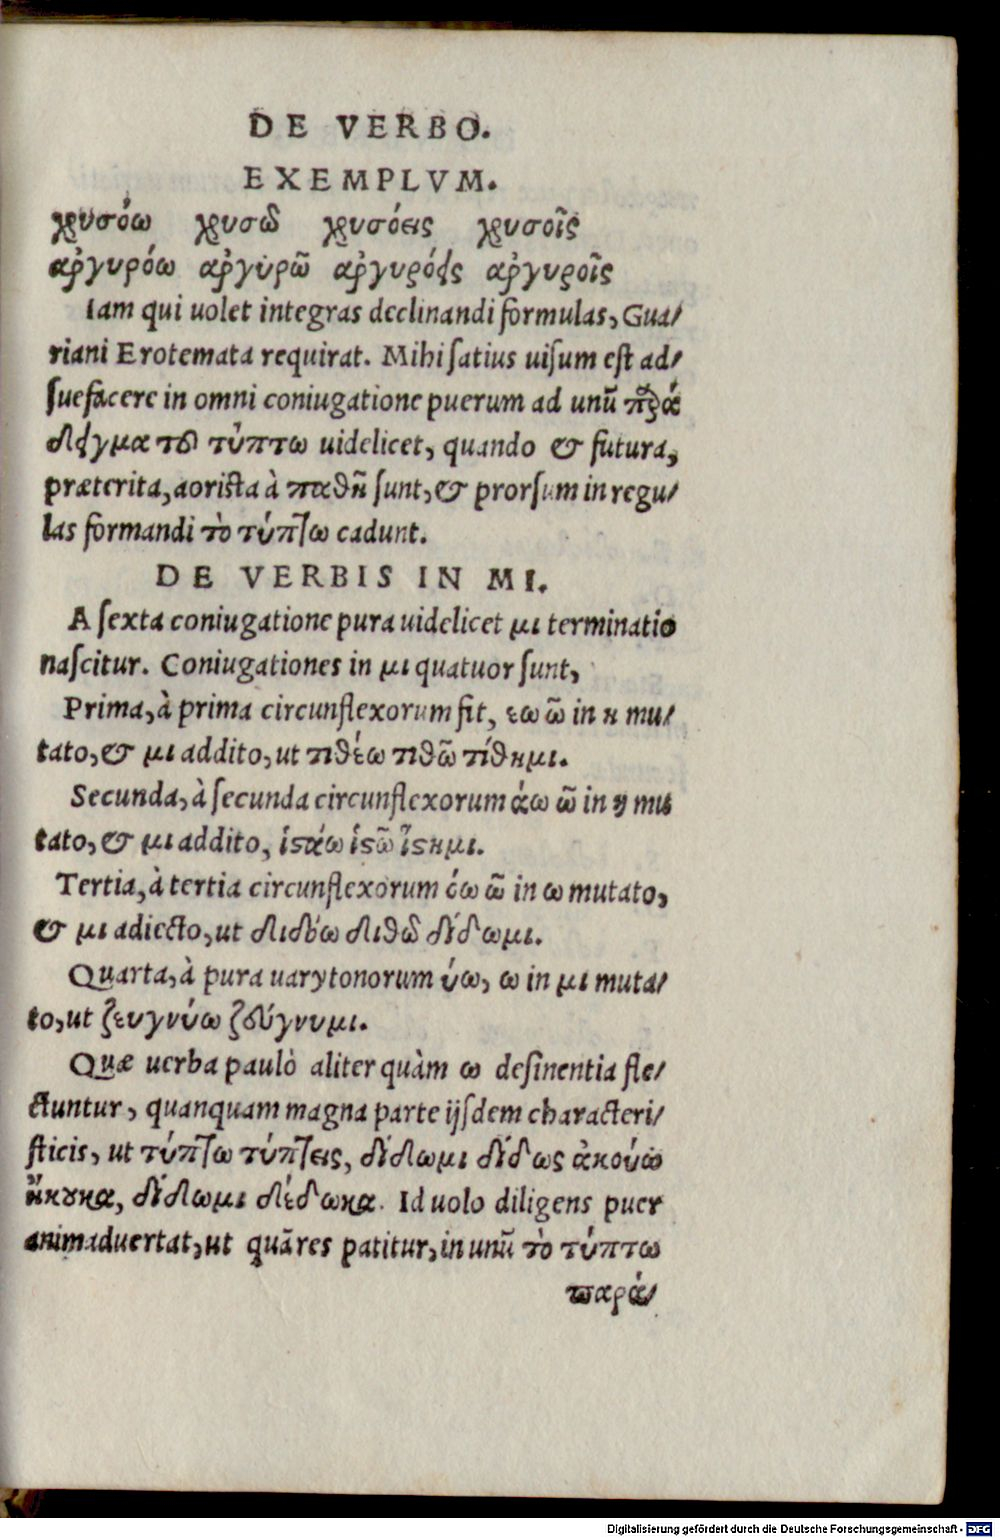 DE VERBO.
EXEMPLVM.
χρυσόω χρυσῶ χρυσόεις χρυσοῖς
ἀργυρόω ἀργυρῶ ἀργυρόεις ἀργυροῖς
Iam qui uolet integras declinandi formulas, Gua/
riani Erotemata requirat. Mihi satius uisum est ad/
suefacere in omni coniugatione puerum ad unũ παρά
δειγμα τοῦ τύπτω uidelicet, quando & futura,
præterita, aorista à παθῆ sunt, & prorsum in regu/
las formandi τὸ τύπτω cadunt.
DE VERBIS IN MI.
A sexta coniugatione pura uidelicet μι terminatio
nascitur. Coniugationes in μι quatuor sunt,
Prima, à prima circunflexorum fit, εω ῶ in η mu/
tato, & μι addito, ut τιθέω τιθῶ τίθημι.
Secunda, à secunda circunflexorum άω ῶ in η mu
tato, & μι addito, ἱστάω ἱστῶ ἵστημι.
Tertia, à tertia circunflexorum όω ῶ in ω mutato,
& μι adiecto, ut διδόω διδῶ δίδωμι.
Quarta, à pura uarytonorum ύω, ω in μι muta/
to, ut ζευγνύω ζεύγνυμι.
Quæ uerba paulò aliter quàm ω desinentia fle/
ctuntur, quanquam magna parte ijsdem characteri/
sticis, ut τύπτω τύπτεις, δίδωμι δίδως ἀκούω
ἤκουκα, δίδωμι δέδωκα. Id uolo diligens puer
animaduertat, ut quã res patitur, in unũ τὸ τύπτω
παρά/
Digitalisierung gefördert durch die Deutsche Forschungsgemeinschaft - DFG